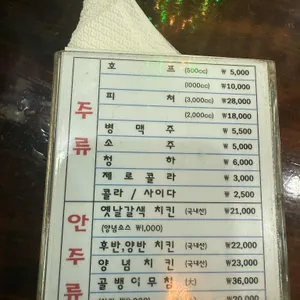 주류
호 프 (500cc) ₩ 5,000
(1000cc) ₩ 10,000
피 쳐 (3,000cc) ₩28,000
(2,000cc) ₩ 18,000
병 맥 주 ₩ 5,500
소 주 ₩ 5,000
청 하 ₩ 6,000
제 로 콜 라 ₩ 3,000
콜 라 / 사 이 다 ₩ 2,500
안주류
옛날갈색 치킨 (국내산) ₩21,000
(양념소스 ₩1,000)
후반,양반 치킨 (국내산) ₩22,000
양 념 치 킨 (국내산) ₩23,000
골 뱅 이 무 침 (大) ₩36,000